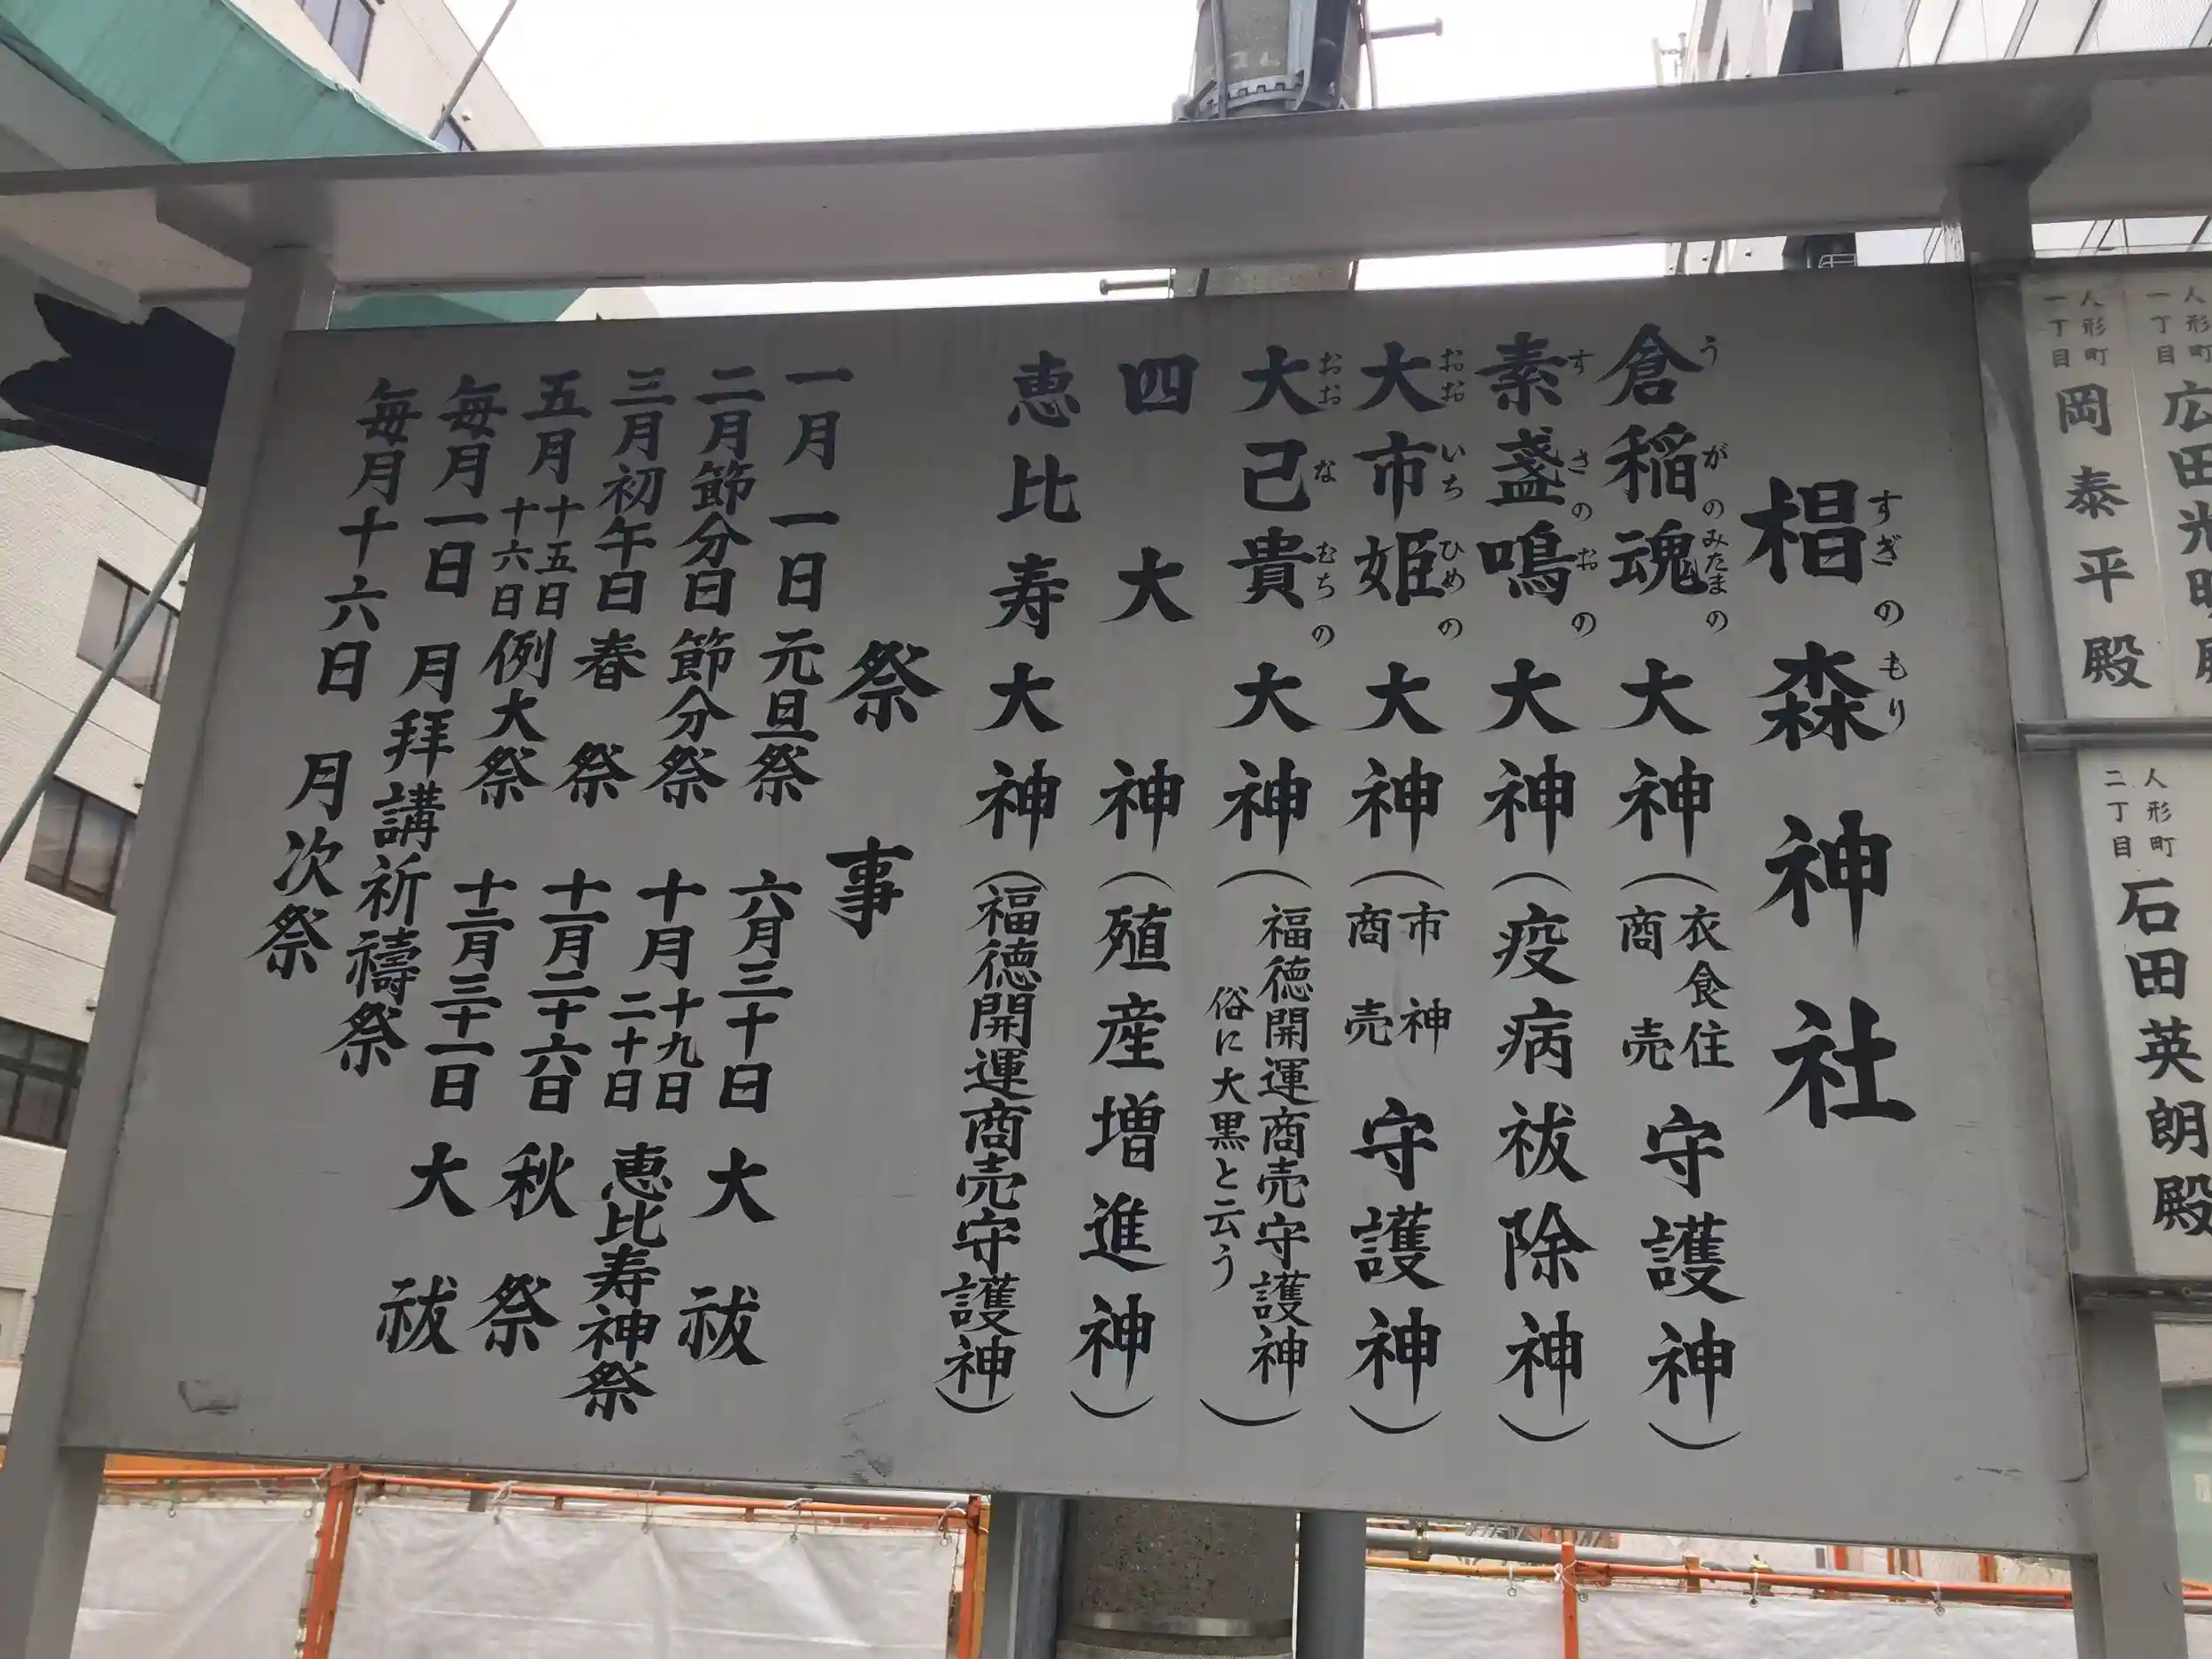 椙森神社
すぎのもり
倉稲魂大神（衣食住商売守護神）
うがのみたまの
素盞鳴大神（疫病祓除神）
すさのおの
大市姫大神（市神商売守護神）
おおいちひめの
大己貴大神（福徳開運商売守護神俗に大黒と云う）
おおなむちの
四大神（殖産増進神）
恵比寿大神（福徳開運商売守護神）
祭事
一月一日元旦祭
六月三十日大祓
二月節分日節分祭
十月十九日二十日恵比寿神祭
三月初午日春祭
十一月二十六日秋祭
五月十五日十六日例大祭
十二月三十一日大祓
毎月一日月拝講祈禱祭
毎月十六日月次祭
人形町一丁目
広田光
人形町一丁目
岡泰平殿
人形町二丁目
石田英朗殿